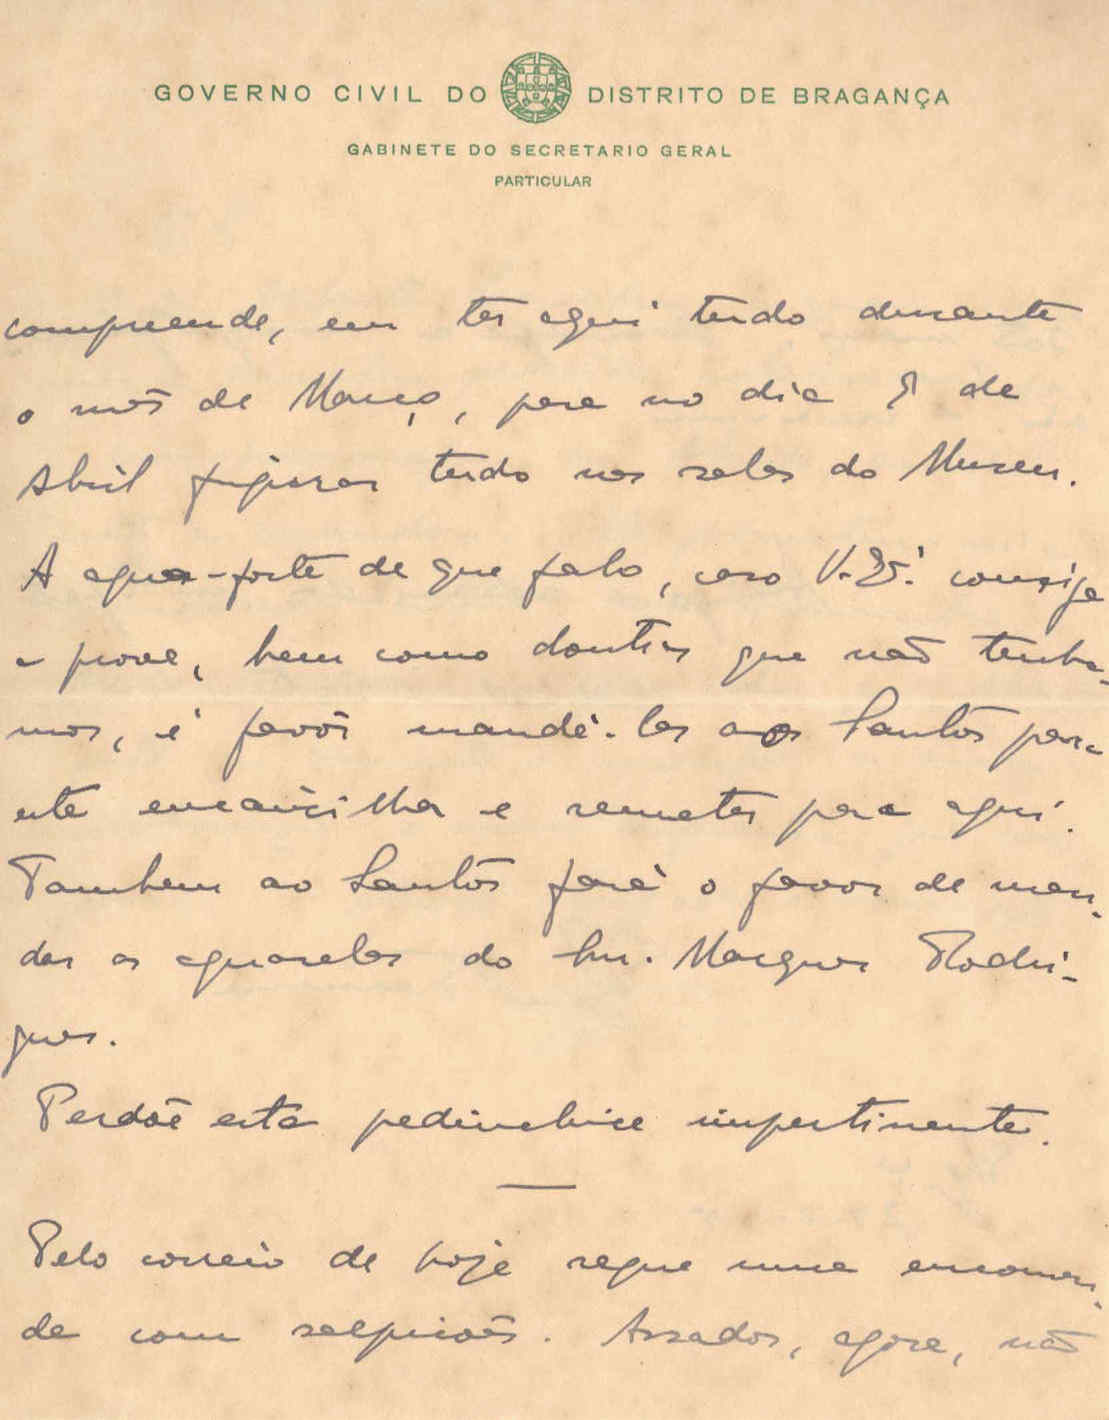 GOVERNO CIVIL DO DISTRITO DE BRAGANÇA
GABINETE DO SECRETARIO GERAL
PARTICULAR
compreende, em ter aqui tudo durante
o mês de Março, para no dia 8 de
Abril figurar tudo nas salas do Museu.
A agua-forte de que falo, caso V. Ex.ª consiga
a prova, bem como doutras que não tenha-
mos, é favôr mandá-las aos Santos para
êste encaixilhar e remeter para aqui.
Tambem ao Santos fará o favor de man-
dar as aguarelas do Snr. Marques Rodri-
gues.
Perdôe esta pedinchice impertinente.
Pelo correio de hoje segue uma encomen-
da com salpicões. Assados, agora, não